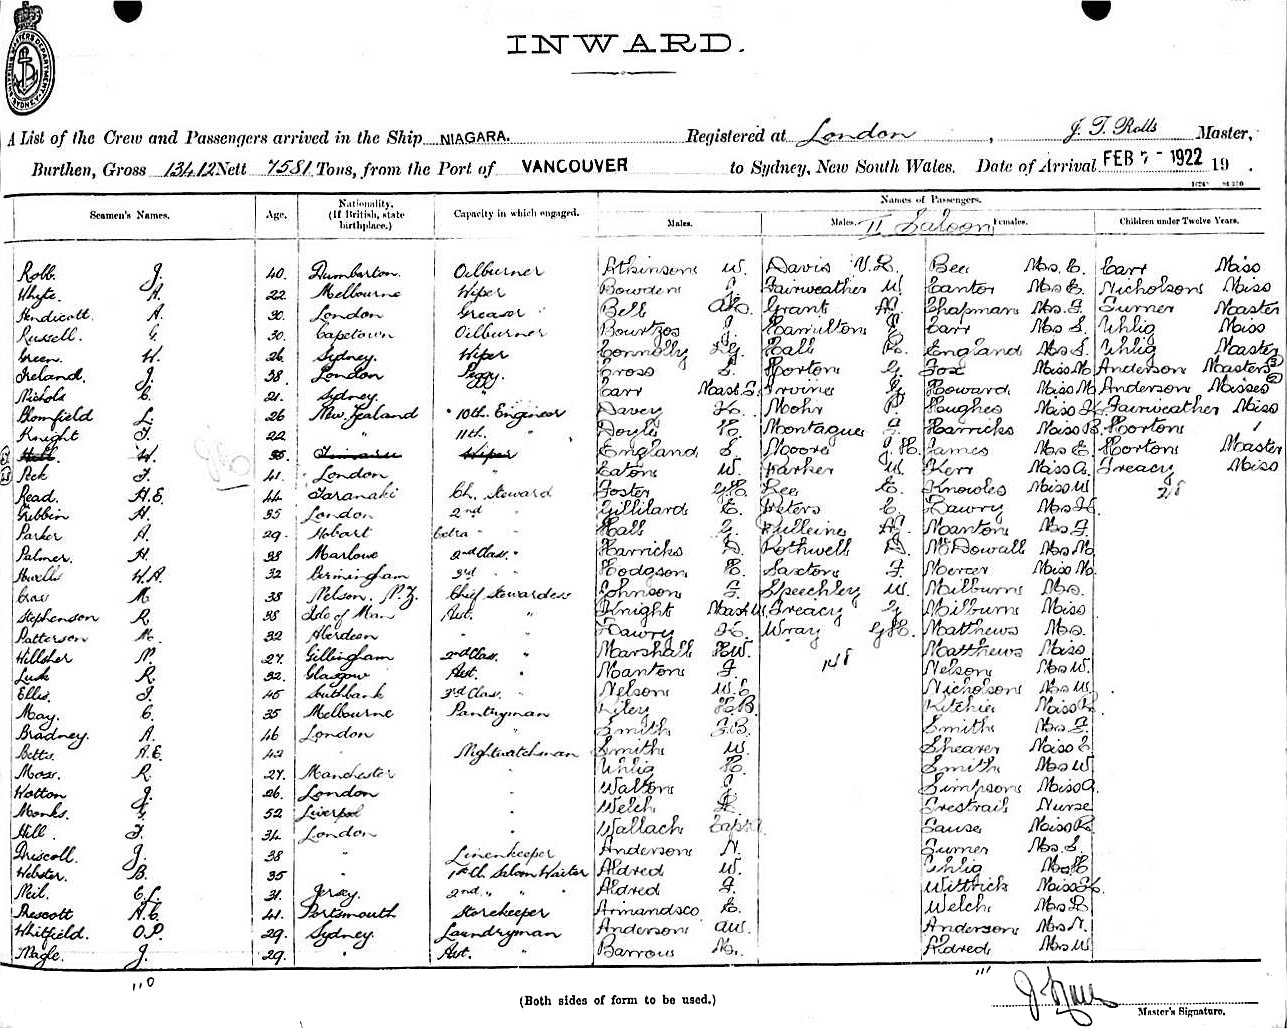 INWARD.
A List of the Crew and Passengers arrived in the Ship NIAGARA. Registered at London, J. T. Rolls Master,
Burthen, Gross 13412 Nett 7581 Tons, from the Port of VANCOUVER to Sydney, New South Wales. Date of Arrival FEB 7 - 1922 19 .
Names of Passengers.
Seamen's Names. Age. Nationality. (If British, state birthplace.) Capacity in which engaged. Males. Males. Females. Children under Twelve Years.
II Saloon
Robb. J. 40. Dumbarton. Oilburner Atkinson W. Davis V.L. Bee Mrs. E. Carr Miss
Whyte. A. 22. Melbourne Wiper Bowden Fairweather W Cantor Mrs E. Nicholson Miss
Hendicott. A. 30. London Greaser Bell Grant Chapman Mrs. G. Turner Master
Russell. G. 30. Capetown Oilburner Bourtzos Hamilton Carr Mrs S. Uhlig Miss
Green. W. 26. Sydney. Wiper Connolly Hall R. England Mrs S. Uhlig Master
Ireland. J. 38. London Peggy. Cross S. Horton G Fox Miss M Anderson Masters
Nichols C. 21. Sydney " Carr Mast. Irvine Howard Miss M Anderson Misses
Blomfield L. 26 New Zealand " 10th. Engineer Davey Mohr P. Hughes Miss Fairweather Miss
Knight F. 22 " 11th. " Doyle Montague F. Harricks Miss B. Horton 1
W. Timaru Wiper England S. Moore J.H. James Mrs E. Horton Master
Peck F. 41. London " Eaton W. Parker W Kerr Miss A. Treacy Miss
Read. H.E. 44 Taranaki Ch. Steward Foster Lee E. Knowles Miss W
Gibbin H. 35 London 2nd " Gillilard E. Peters C. Lawry Mrs H.
Parker A. 29. Hobart Extra " " Hall G. Pulleine Manton Mrs. F
Palmer. H. 38 Marlow 2nd Class. " Harricks D. Rothwell D. McDowall Mrs M.
Howells W.A. 32 Birmingham 3rd " " Hodgson H. Saxton F. Mercer Miss M.
Cross M 38 Nelson. N.Z. Chief Stewardess Johnson F. Speechley W. Milburn Mrs.
Stephenson R. 38 Isle of Man Ast. " Knight Mast W Treacy Milburn Miss
Patterson M. 32 Aberdeen " " Lawry H. Wray G.H. Matthews Mrs.
Hillsher M. 27. Gillingham 2nd Class. " Marshall H.W. Matthews Miss
Lusk R 32. Glasgow Ast. " Manton F. Nelson Mrs W.
Ellis. F. 45 Southbank 3rd Class. " Nelson W.E Nicholson Mrs W
May. C. 35 Melbourne Pantryman Riley Ritchie Miss
Bradney. A. 46 London " Smith F.B. Smith Mrs. F.
Betts. A.E. 42 " Nightwatchman Smith W. Shearer Miss E.
Moss. R. 27. Manchester " Uhlig H. Smith Mrs W
Wotton J. 26. London " Walton Simpson Miss A.
Monks. G. 52 Liverpool " Welch Trestrail Nurse
Hill. F. 34. London " Wallach Captn. Miss R.
Driscoll. J. 38 " Linenkeeper Anderson N. Turner Mrs. S.
Webster. B. 35 " 1st Cl. Saloon Waiter Aldred W. Uhlig Mrs H
Neil. C.L. 31. Jersey. 2nd. " " " Aldred F. Wittrick Miss
Prescott A.C. 41. Portsmouth Storekeeper Armandsco E. Welch Mrs L.
Whitfield. O.P. 29. Sydney. Laundryman Anderson Anderson Mrs. N.
Nagle. J. 29. " Ast. " Barrow Aldred Mrs W
110 111
(Both sides of form to be used.)
Master's Signature.